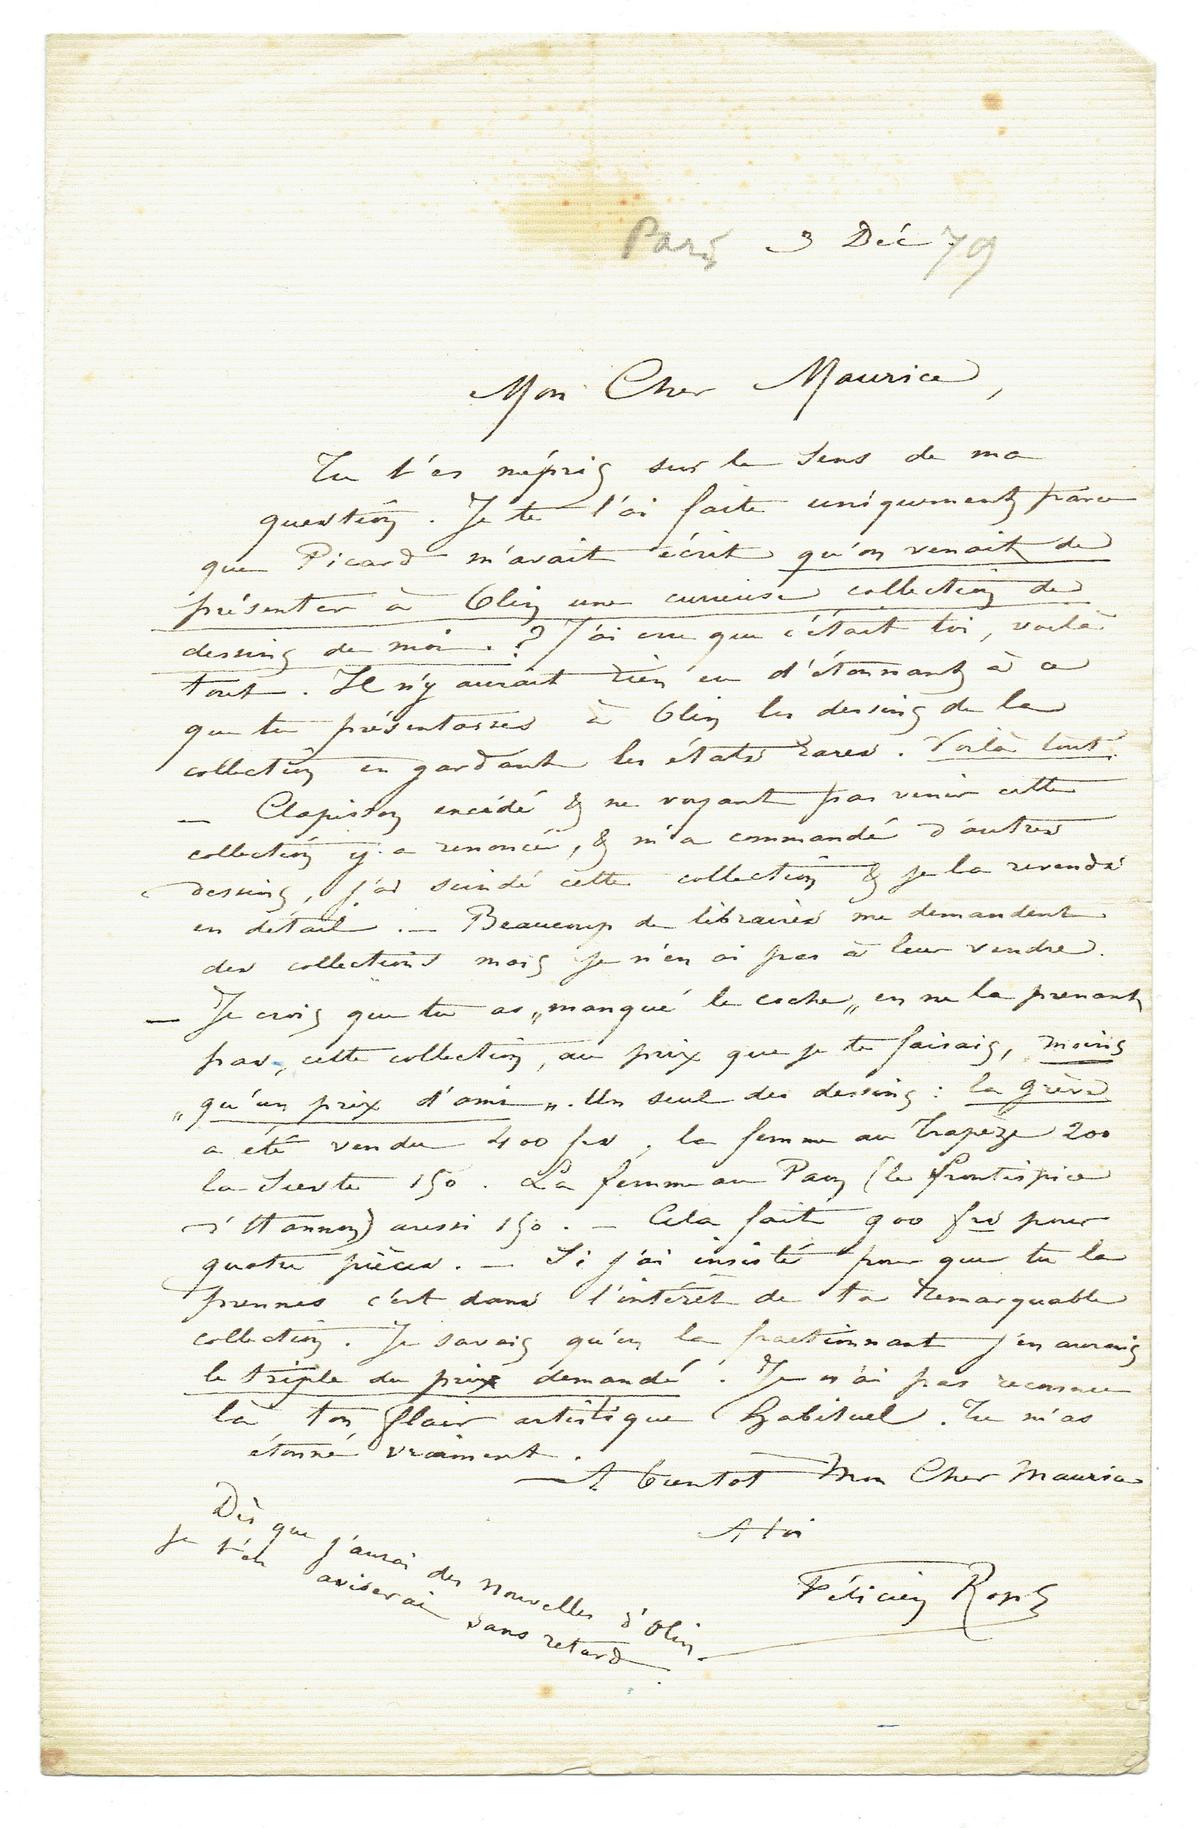 Paris 3 Déc 79
Mon Cher Maurice,
Tu t'es mépris sur le sens de ma
question. Je te l'ai faite uniquement parce
que Picard m'avait écrit qu'on venait de
présenter à Olin une curieuse collection de
dessins de moi. ? J'ai cru que c'était toi, voilà
tout. Il n'y aurait rien eu d'étonnant à ce
que tu présentasses à Olin les dessins de la
collection en gardant les états rares. Voilà tout.
— Clapisson excédé & ne voyant pas venir cette
collection y a renoncé, & m'a commandé d'autres
dessins, j'ai scindé cette collection & je la revends
en détail. — Beaucoup de libraires me demandent
des collections mais je n'en ai pas à leur vendre.
— Je crois que tu as „manqué le coche„ en ne la prenant
pas, cette collection, au prix que je te faisais, moins
„qu'un prix d'ami„. Un seul des dessins : la grève
a été vendu 400 frs, la femme au Trapèze 200
la Sieste 150. La femme au Paon (le frontispice
d'Hannon) aussi 150. — Cela fait 900 frs pour
quatre pièces. — Si j'ai insisté pour que tu la
prennes c'est dans l'intérêt de ta remarquable
collection. Je savais qu'en la fractionnant j'en aurais
le triple du prix demandé. Je n'ai pas reconnu
là ton flair artistique habituel. Tu m'as
étonné vraiment.
— A bientot Mon Cher Maurice
A toi
Félicien Rops
Dès que j'aurai des nouvelles d'Olin
je t'en aviserai sans retard.